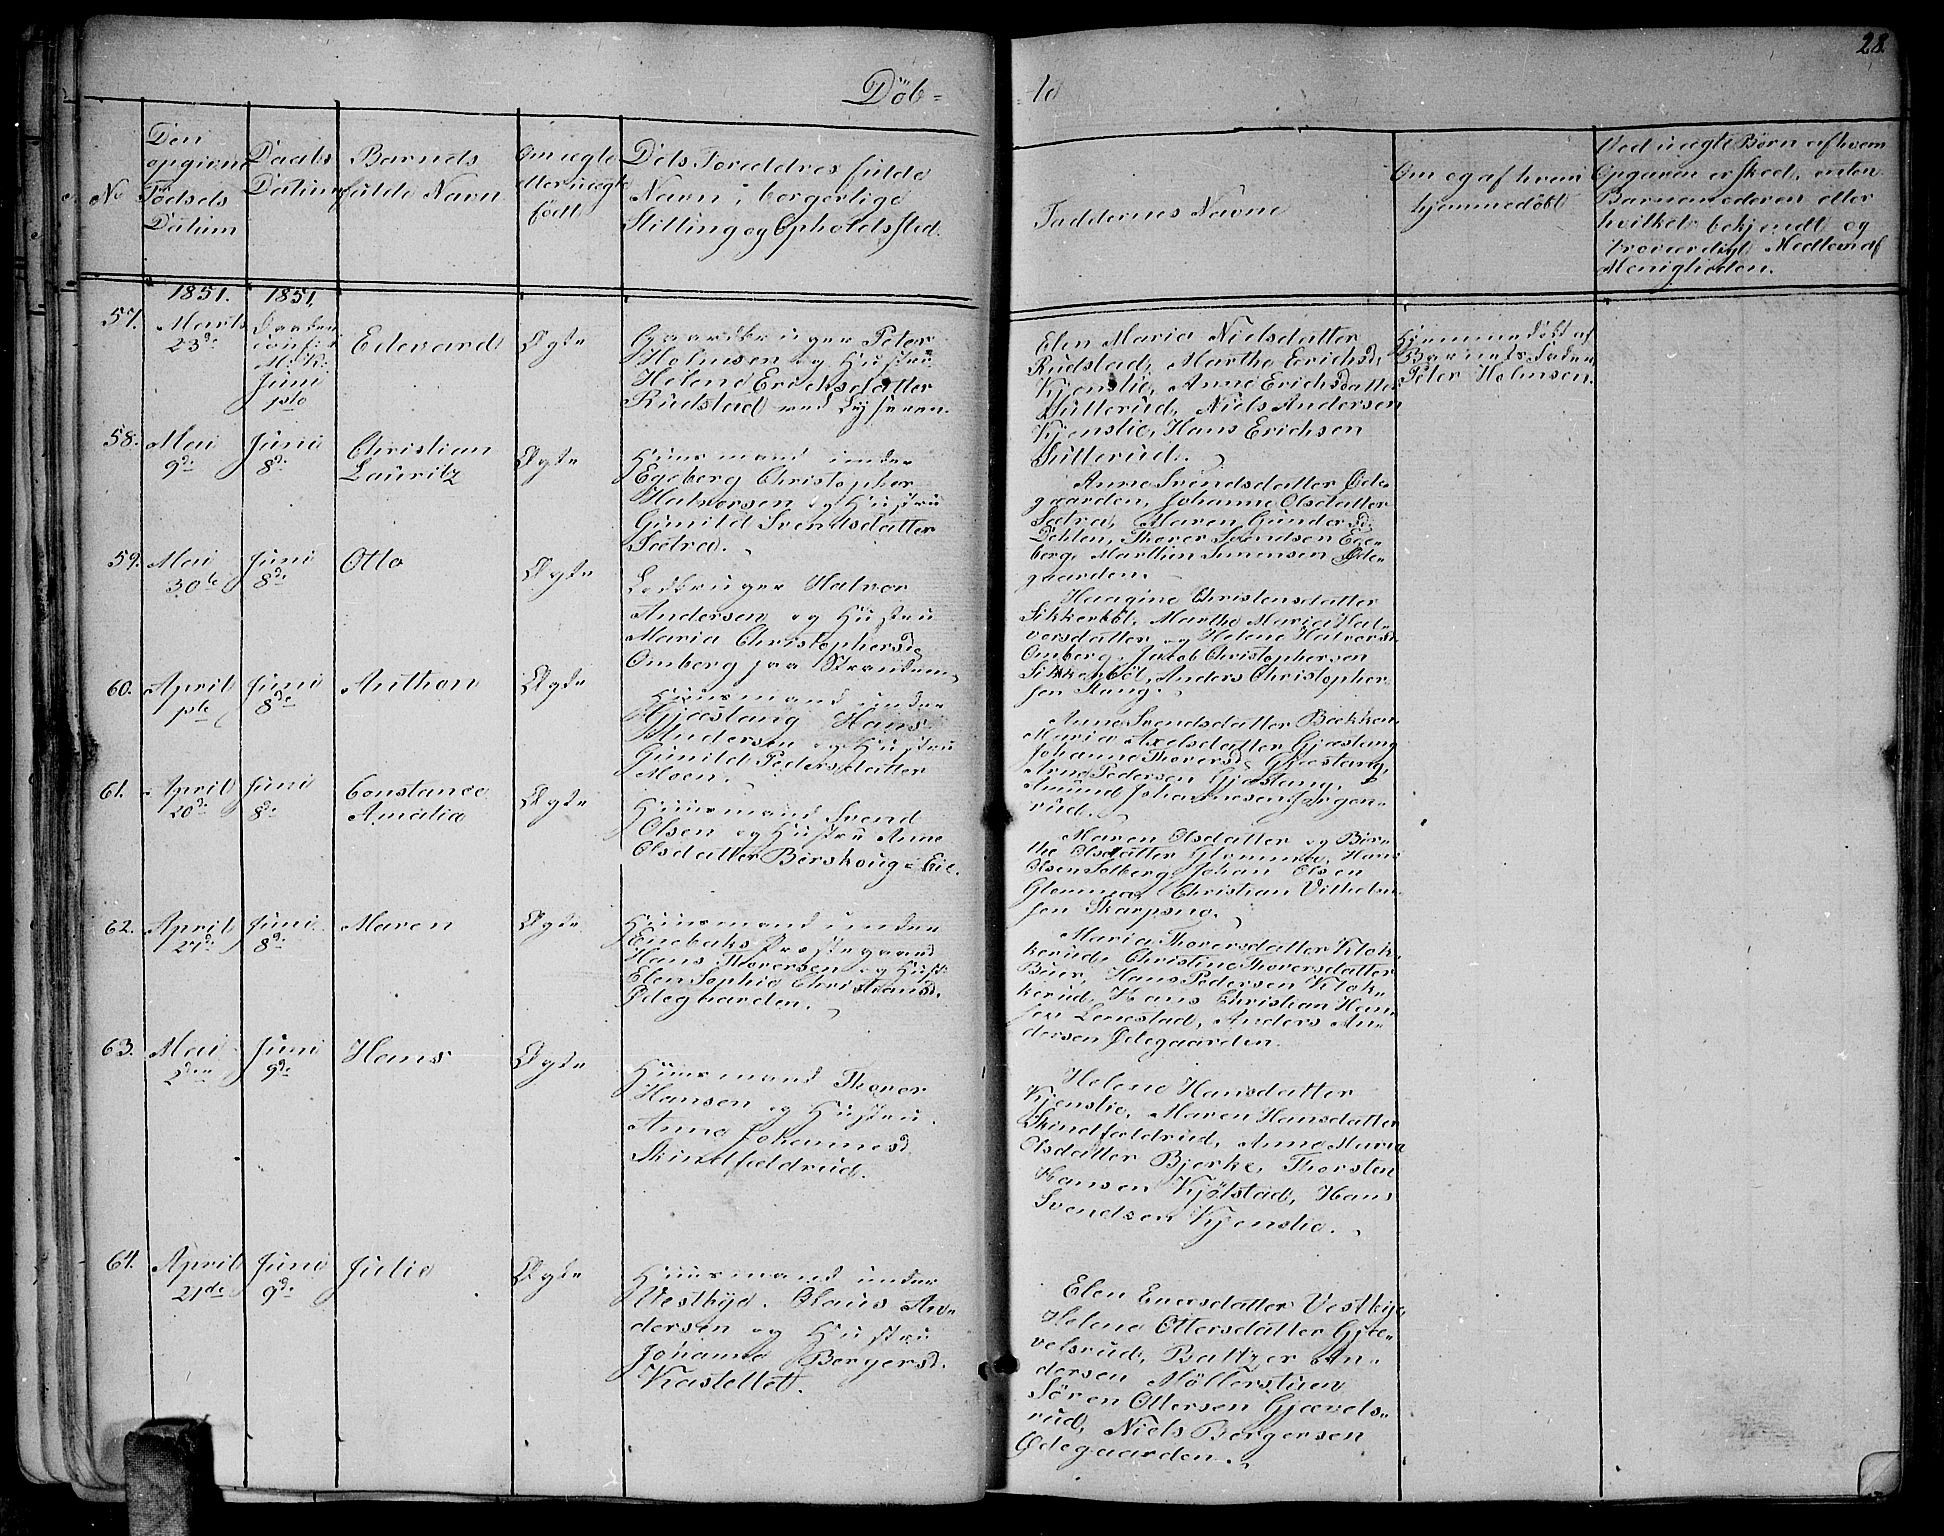 28
Döb-
-te
No
Den
opgivne
Fødsels
Datum
Daabs
Datum
Barnets
fulde Navn
Om ægte
eller uægte
født
Dets Forældres fulde
Navn, borgerlige
Stilling og Opholdssted.
Faddernes Navne
Om og af hvem
hjemmedøbt
Ved uægte Børn af hvem
Opgaven er skeet, enten
Barnemoderen eller
hvilket bekjendt og
troværdigt Medlem af
Menigheden.
1851.
1851.
57.
Marts
23de
Daaben
conf. i
M. K.
Juni
1ste
Edevard
Ægte
Gaardbruger Peter
Holmsen og Hustru
Helene Ericksdatter
Rudstad ved Lyseren.
Elen Maria Nielsdatter
Rudstad, Marthe Erichsd.
Kjenslie, Anne Erichsdatter
Sutterud, Niels Andersen
Kjenslie, Hans Erichsen
Sutterud.
Hjemmedøbt af
Barnets Fader
Peter Holmsen.
58.
Mai
9de
Juni
8de
Christian
Lauritz
Ægte
Huusmand under
Egeberg Christopher
Halvorsen og Hustru
Gunild Svendsdatter
Sætra.
Anne Svendsdatter Øde-
gaarden, Johanne Olsdatter
Sætra, Maren Gundersd.
Dehlen, Thorer Svendsen Ege-
berg, Marthin Simensen Øde-
gaarden.
59.
Mai
30te
Juni
8de
Otto
Ægte
Ledbruger Halvor
Andersen og Hustru
Maria Christophersd.
Omberg paa Stranden.
Haagine Christensdatter
Sikkerböl, Marthe Maria Hal-
vorsdatter og Helene Halvorsd.
Omberg, Jacob Christophersen
Sikkerböl, Anders Christopher-
sen Stang.
60.
April
1ste
Juni
8de
Anthon
Ægte
Huusmand under
Gjæstang Hans
Andersen og Hustru
Gunild Pedersdatter
Moen.
Anne Svendsdatter Bækken
Maria Axelsdatter Gjæstang
Johanne Thorersd. Gjæstang,
Arne Pedersen Gjæstang,
Amund Johannesen Jørgen-
rud.
61.
April
20de
Juni
8de
Constance
Amalia
Ægte
Huusmand Svend
Olsen og Hustru Anne
Olsdatter Börskoug-Eie.
Maren Olsdatter og Bir-
the Olsdatter Glomma, Hans
Olsen Solberg, Johan Olsen
Glomma, Christian Vilhelm-
sen Skarpsno.
62.
April
27de
Juni
8de
Maren
Ægte
Huusmand under
Enebaks Prestegaard
Hans Thorersen og Hust.
Elen Sophie Christiansd.
Ødegaarden.
Maria Thorersdatter Klok-
kerud, Christine Thorersdatter
Buer, Hans Pedersen Klok-
kerud, Hans Christian Han-
sen Lenestad, Anders An-
dersen Ødegaarden.
63.
Mai
2den
Juni
9de
Hans
Ægte
Huusmand Thorer
Hansen og Hustru
Anne Johannesd.
Skindfældrud.
Helene Hansdatter
Kjenslie, Maren Hansdatter
Skindfældrud, Anne Maria
Olsdatter Bjerke, Thorsten
Hansen Kjölstad, Hans
Svendsen Kjenslie.
64.
April
21de
Juni
9de
Julie
Ægte
Huusmand under
Vestbye. Olaus An-
dersen og Hustru
Johanne Bergersd.
Kastellet.
Elen Enersdatter Vestbye
Helene Ottersdatter Gjæ-
velsrud, Baltzer An-
dersen Möllerstuen
Søren Ottersen Gjævels-
rud, Niels Bergersen
Ødegaarden.